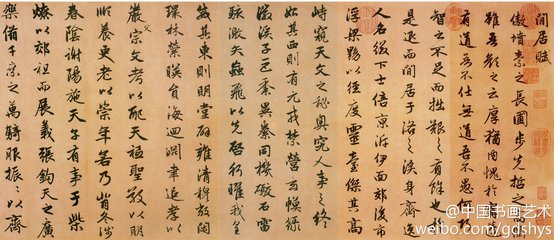 閒居賦
傲墳素之長圃步先哲之高衢
雖吾顏之云厚猶内愧於寧蘧
有道吾不仕無道吾不愚何巧
智之不足而拙艱之有餘也於
是退而閒居于洛之涘身齊逸
人名綴下士倍京泝伊面郊後市
浮梁黝以徑度靈臺傑其高
峙窺天文之秘奧究人事之終
始其西則有元戎禁營玄幙綠
徽溪子巨黍異絭同機礮石雷
駭激矢蝱飛以先啓行曜我皇
威其東則明堂辟雍清穆敞閑
環林縈暎圓海迴淵聿追孝以
嚴父宗文考以配天祗聖敬以明
順養更老以崇年若乃背冬涉
春陰謝陽施天子有事于柴
燎以郊祖而展義張鈞天之廣
樂備千乘之萬騎服振振以齊
@中国书画艺术
weibo.com/gdshys